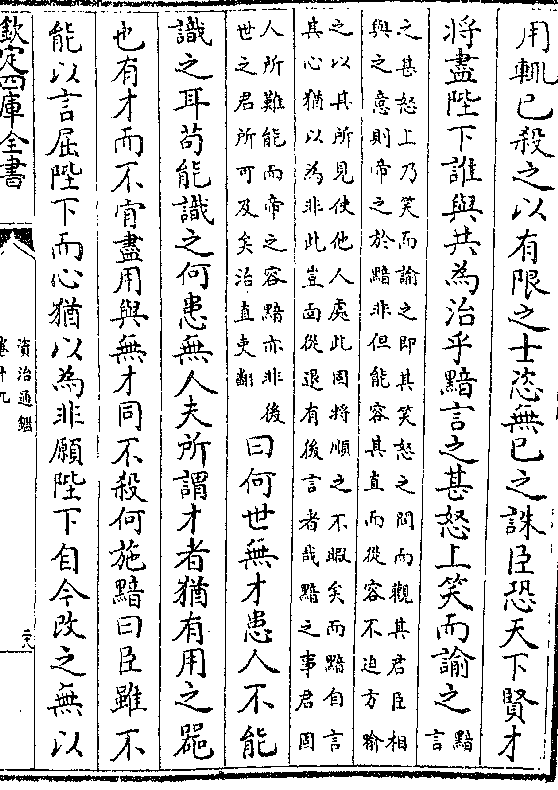 用輒已殺之以有限之士恣無已之誅臣恐天下賢才
將盡陛下誰與共為治乎黯言之甚怒上笑而諭之黯言
之甚怒上乃笑而諭之即其笑怒之間而觀其君臣相
與之意則帝之於黯非但能容其直而從容不迫方喻
之以其所見使他人處此固將順之不暇矣而黯自言
其心猶以為非此豈面從退有後言者哉黯之事君固
人所難能而帝之容黯亦非後
世之君所可及矣治直吏翻
曰何世無才患人不能
識之耳苟能識之何患無人夫所謂才者猶有用之器
也有才而不肯盡用與無才同不殺何施黯曰臣雖不
能以言屈陛下而心猶以為非願陛下自今改之無以
欽定四庫全書
資治通鑑
卷十九